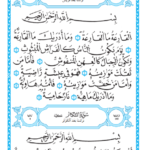 بِسْمِ اللَّهِ الرَّحْمَٰنِ الرَّحِيمِ
الْقَارِعَةُ مَا الْقَارِعَةُ وَمَا أَدْرَاكَ مَا الْقَارِعَةُ
يَوْمَ يَكُونُ النَّاسُ كَالْفَرَاشِ الْمَبْثُوثِ
وَتَكُونُ الْجِبَالُ كَالْعِهْنِ الْمَنْفُوشِ فَأَمَّا مَنْ
ثَقُلَتْ مَوَازِينُهُ فَهُوَ فِي عِيشَةٍ رَاضِيَةٍ وَأَمَّا مَنْ
خَفَّتْ مَوَازِينُهُ فَأُمُّهُ هَاوِيَةٌ
وَمَا أَدْرَاكَ مَا هِيَهْ نَارٌ حَامِيَةٌ
سُورَةُ التَّكَاثُرِ
بِسْمِ اللَّهِ الرَّحْمَٰنِ الرَّحِيمِ